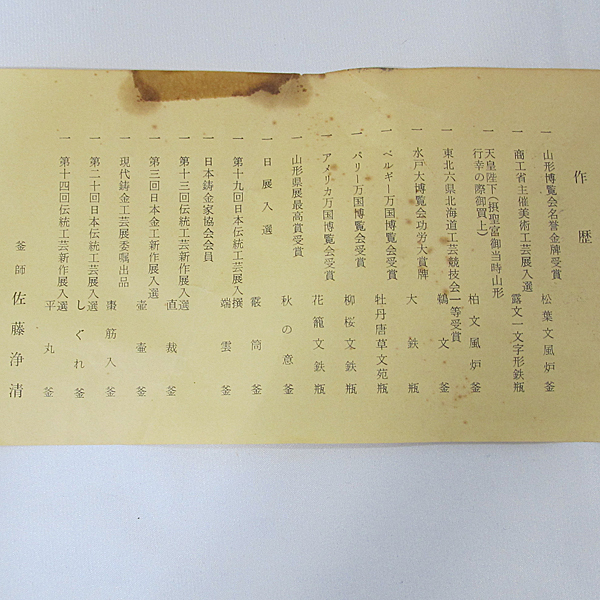 作歴
一 山形博覧会名誉金牌受賞 松葉文風炉釜
一 商工省主催美術工芸展入選 露文一文字形鉄瓶
一 天皇陛下(摂聖宮御当時山形
行幸の際御買上) 柏文風炉釜
一 東北六県北海道工芸競技会一等受賞 鶴文釜
一 水戸大博覧会功労大賞牌 大鉄瓶
一 ベルギー万国博覧会受賞 牡丹唐草文苑瓶
一 パリー万国博覧会受賞 柳桜文鉄瓶
一 アメリカ万国博覧会受賞 花籠文鉄瓶
一 山形県展最高賞受賞 秋の意釜
一 日展入選 叢筒釜
一 第十九回日本伝統工芸展入撰 端雲釜
一 日本鋳金家協会会員
一 第十三回伝統工芸新作展入選 直裁釜
一 第三回日本金工新作展入選 壷壷釜
一 現代鋳金工芸展委嘱出品 棗筋入釜
一 第二十回日本伝統工芸展入選 しぐれ釜
一 第十四回伝統工芸新作展入選 平丸釜
釜師 佐藤浄清